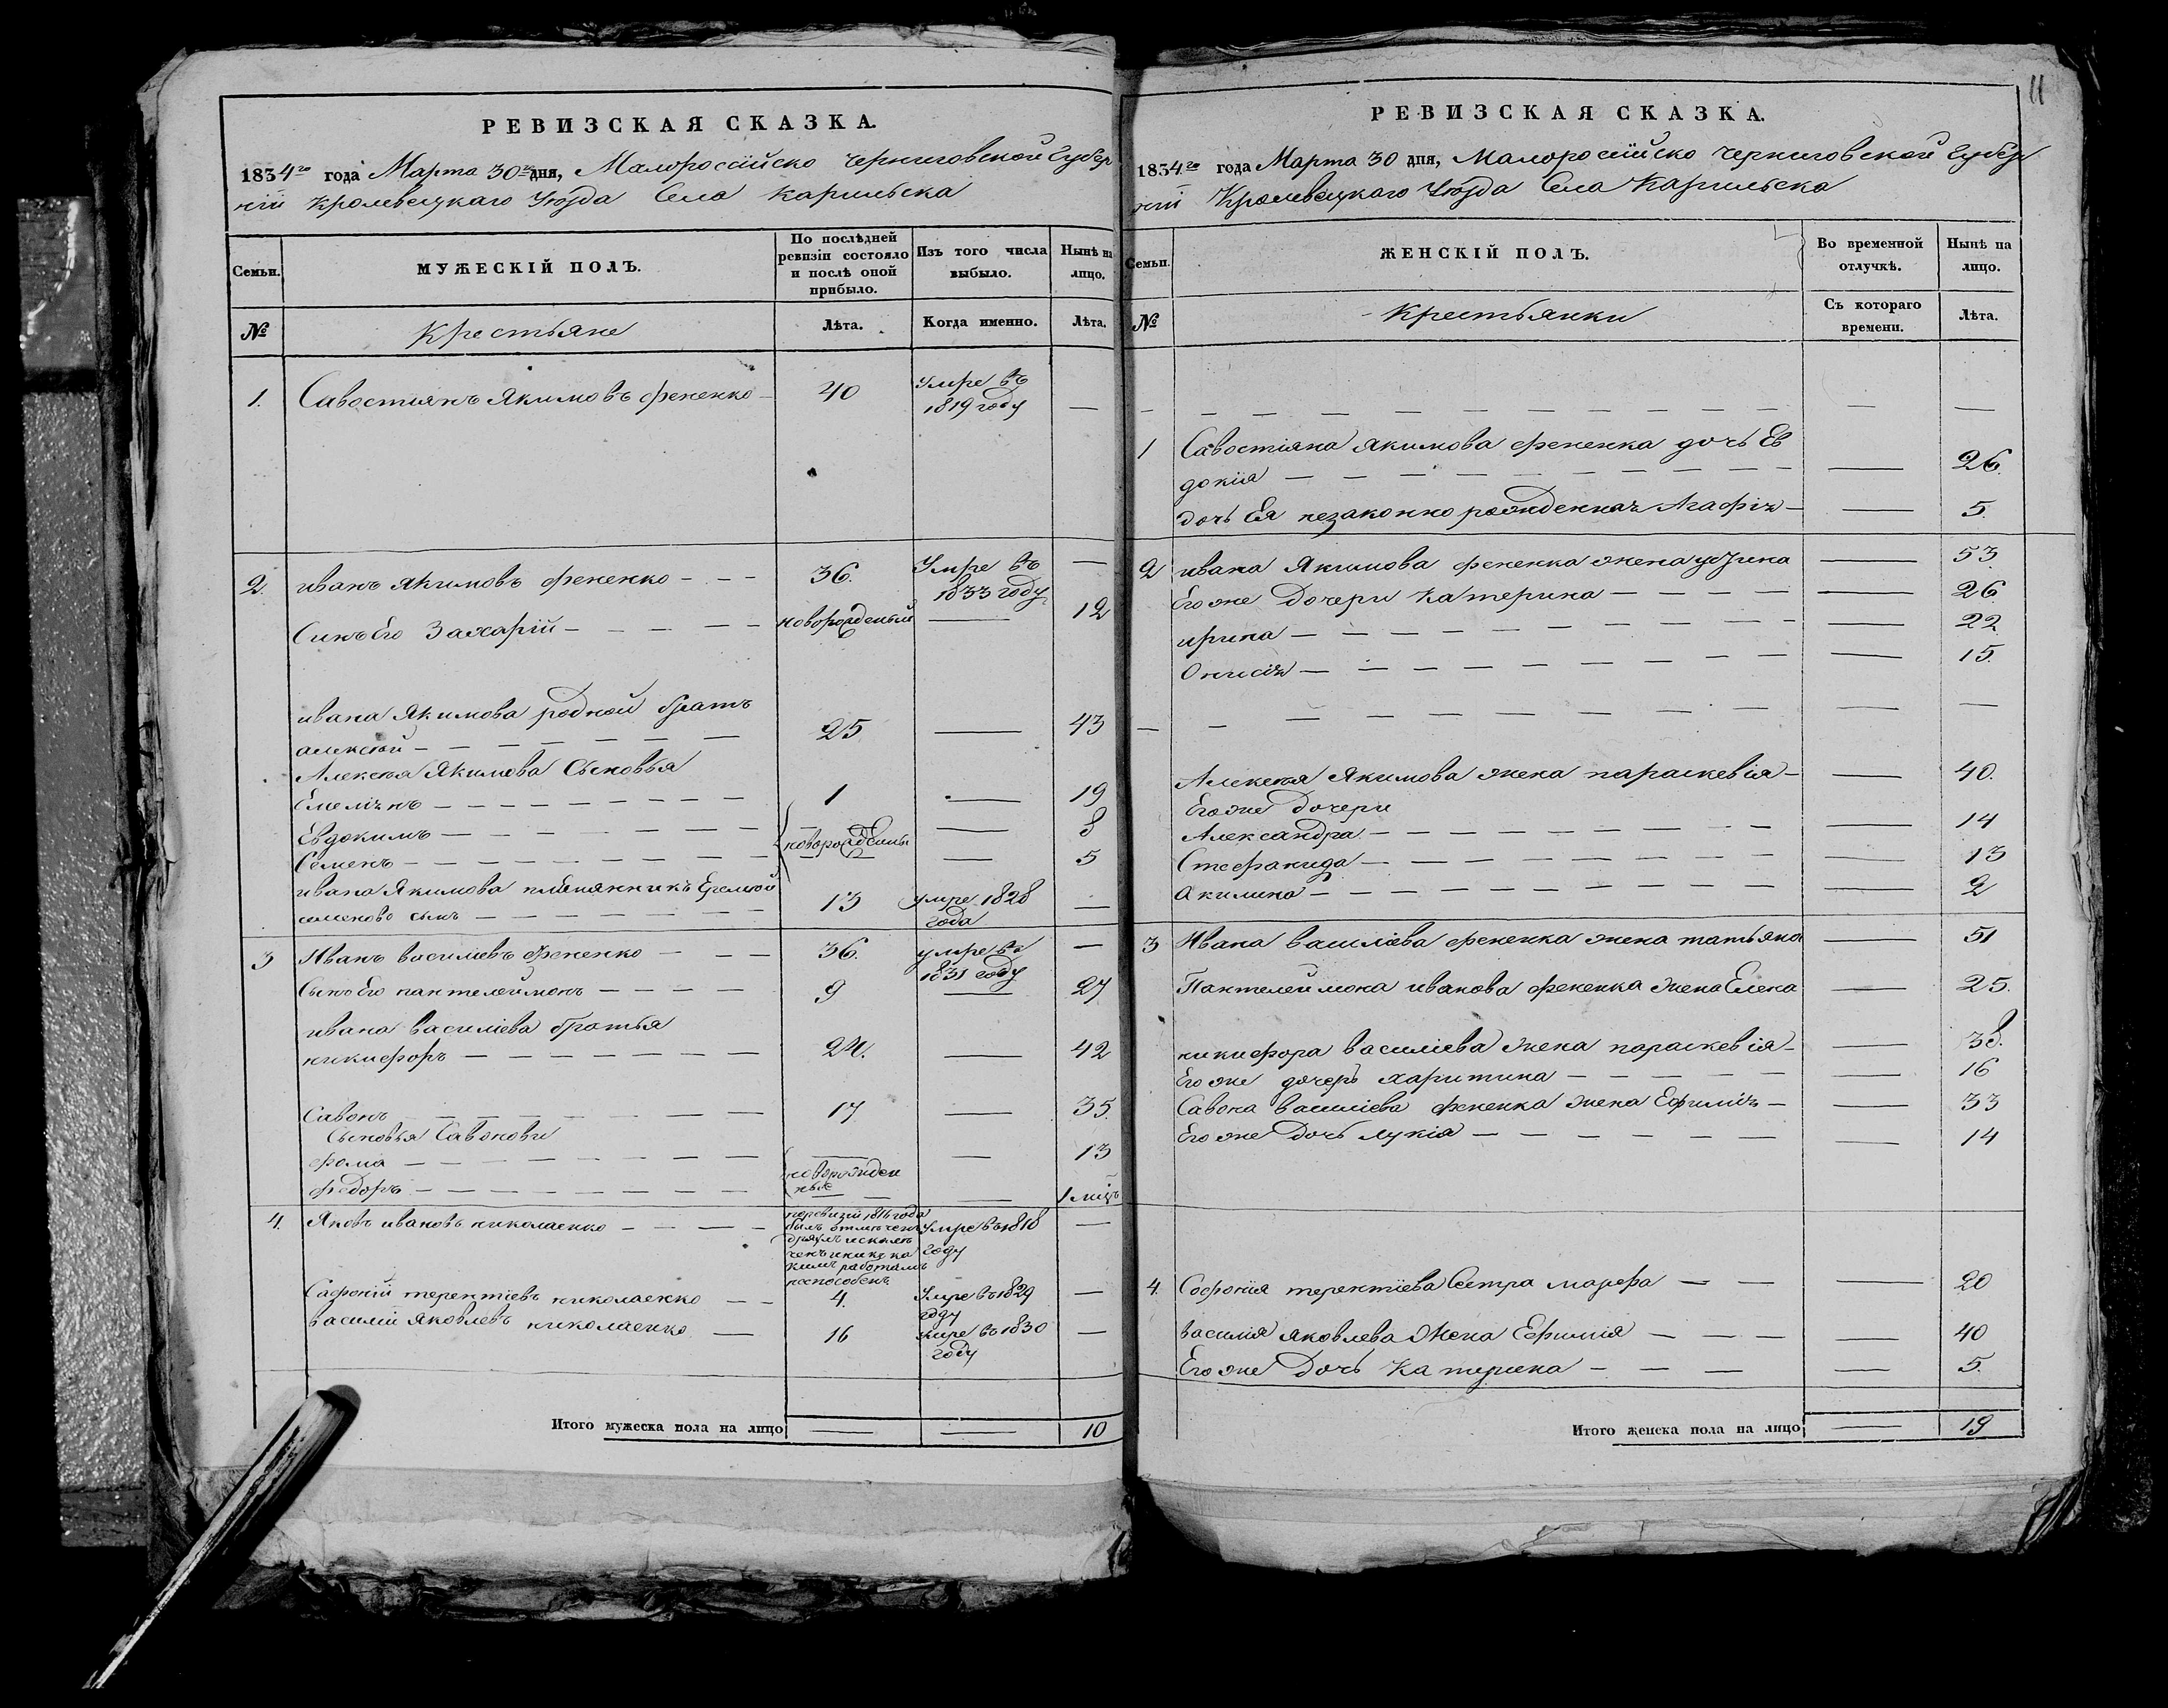 РЕВИЗСКАЯ СКАЗКА.
1834го года Марта 30го дня, Малоросійско Черниговской Губер
ніи Кролевецкаго Уѣзда Села Карильска
Семьи.
МУЖЕСКІЙ ПОЛЪ.
По послѣдней ревизіи состояло и послѣ оной прибыло.
Изъ того числа выбыло.
Нынѣ на лицо.
№
Крестьяне
Лѣта.
Когда именно.
Лѣта.
1. Савостиянъ Якимовъ Фененко 40 Умре въ 1819 году —
2. иванъ Якимовъ фененко 36. Умре въ 1833 году —
Синъ Его Захарій новорожденый — 12
ивана Якимова родной братъ
алексѣй 25 — 43
Алексѣя Якимова Сыновья
Емеліянъ 1 — 19
Евдокимъ — 8
новорожденны
Семенъ — 5
ивана Якимова племянникъ Еремѣй
семеновъ сынъ 13 умре 1828 года —
3 Иванъ василіевъ Фененко 36. умре въ 1831 году —
Сынъ Его пантелеймонъ 9 — 27
ивана василіева братья
никифоръ 24. — 42
Савонъ 17 — 35.
Сыновья Савонови
фома — 13
новорожден
ные
федоръ — 1 мѣцъ
4. Яковъ ивановъ николаенко
поревизіи 1816 года
былъ отмѣчен
ки
ченъ
кимъ работамъ
неспособенъ
Умре въ 1818 году —
Сафроній терентіевъ николаенко 4. Умре въ 1829 году —
василій Яковлевъ николаенко 16 умре въ 1830 году —
Итого мужеска пола на лицо — — 10
11
РЕВИЗСКАЯ СКАЗКА.
1834го года Марта 30 дня, Малоросійско Черниговской Губер
ніи Кролевецкаго Уѣзда Села Карильска
Семьи.
ЖЕНСКІЙ ПОЛЪ.
Во временной отлучкѣ.
Нынѣ на лицо.
№
Крестьянки
Съ котораго времени.
Лѣта.
1 Савостіяна Якимова фененка дочь Ев
докія — 26.
дочь Ея незаконно рожденная Агафія — 5.
2 ивана Якимова фененка жена — 53
Его же Дочери Катерина — 26
ирина — 22
Онисія — 15.
Алексѣя Якимова жена параскевія — 40.
Его же дочери
Александра — 14
Стефанида — 13
Акилина — 2
3 Ивана василіева фененка жена татьяна — 51
Пантелеймона иванова фененка жена Елена — 25.
никифора василіева жена параскевія — 38.
Его же дочерь харитина — 16
Савона василіева фененка жена Ефимія — 33
Его же Дочь лукія — 14
4. Софронія терентіева Сестра марфа — 20
василія яковлева Жена Ефимія — 40
Его же Дочь Катерина — 5.
Итого женска пола на лицо — 19